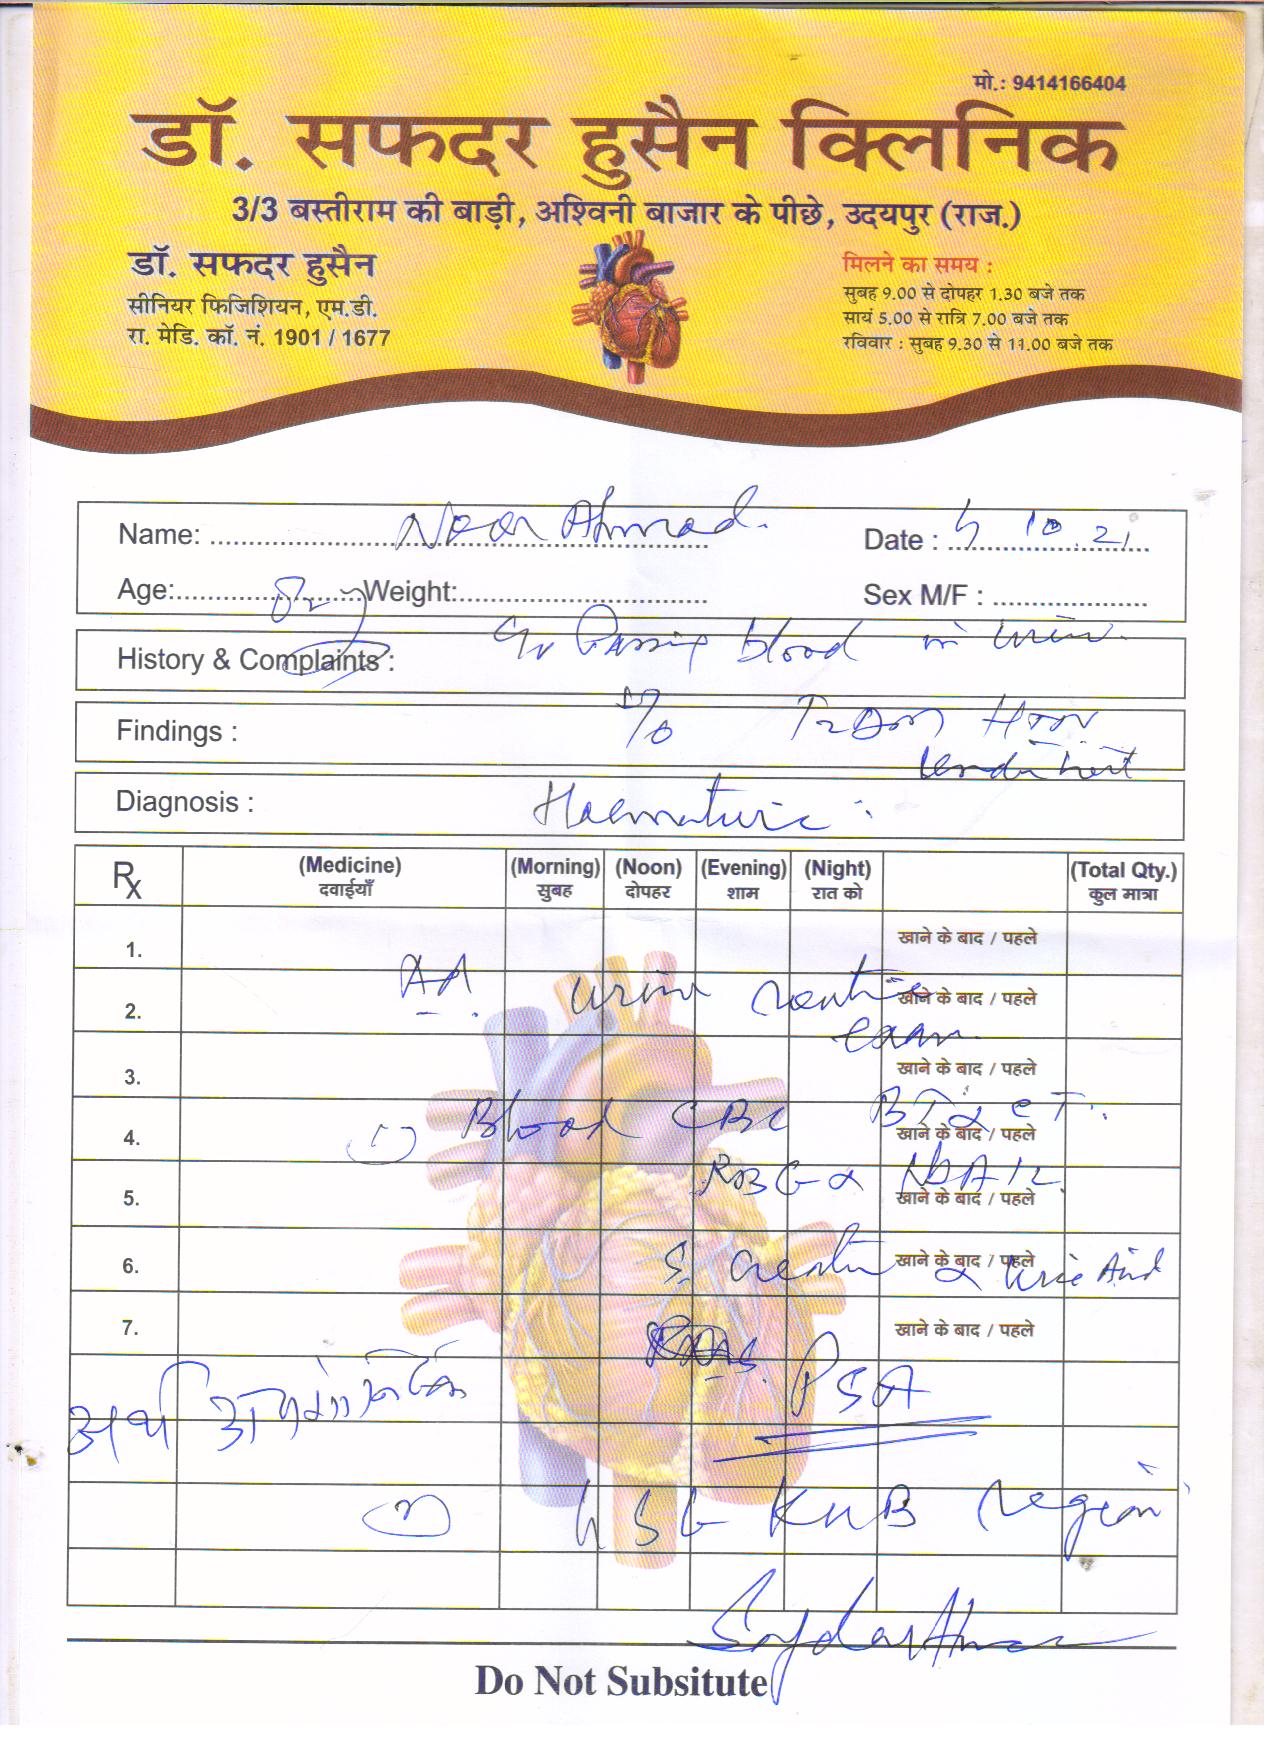 मो.: 9414166404
डॉ. सफदर हुसैन क्लिनिक
3/3 बस्तीराम की बाड़ी, अश्विनी बाजार के पीछे, उदयपुर (राज.)
डॉ. सफदर हुसैन
सीनियर फिजिशियन, एम.डी.
रा. मेडि. कॉ. नं. 1901 / 1677
मिलने का समय :
सुबह 9.00 से दोपहर 1.30 बजे तक
सायं 5.00 से रात्रि 7.00 बजे तक
रविवार : सुबह 9.30 से 11.00 बजे तक
Name: Noor Ahmad. Date : 10.21
Age: Weight: Sex M/F :
History & Complaints : Passing blood in urine
Findings :
Diagnosis : Haematuria
Rx (Medicine) (Morning) (Noon) (Evening) (Night) (Total Qty.)
दवाईयाँ सुबह दोपहर शाम रात को कुल मात्रा
1. खाने के बाद / पहले
2. खाने के बाद / पहले
urine routine
exam
3. खाने के बाद / पहले
Blood CBC BT & CT
4. खाने के बाद / पहले
5. खाने के बाद / पहले
6. खाने के बाद / पहले
S. & Uric Acid
7. खाने के बाद / पहले
PSA
USG KUB region
Do Not Subsitute